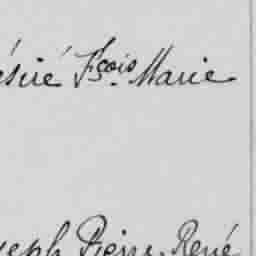 ésiré Fçois Marie
seph Pierre René